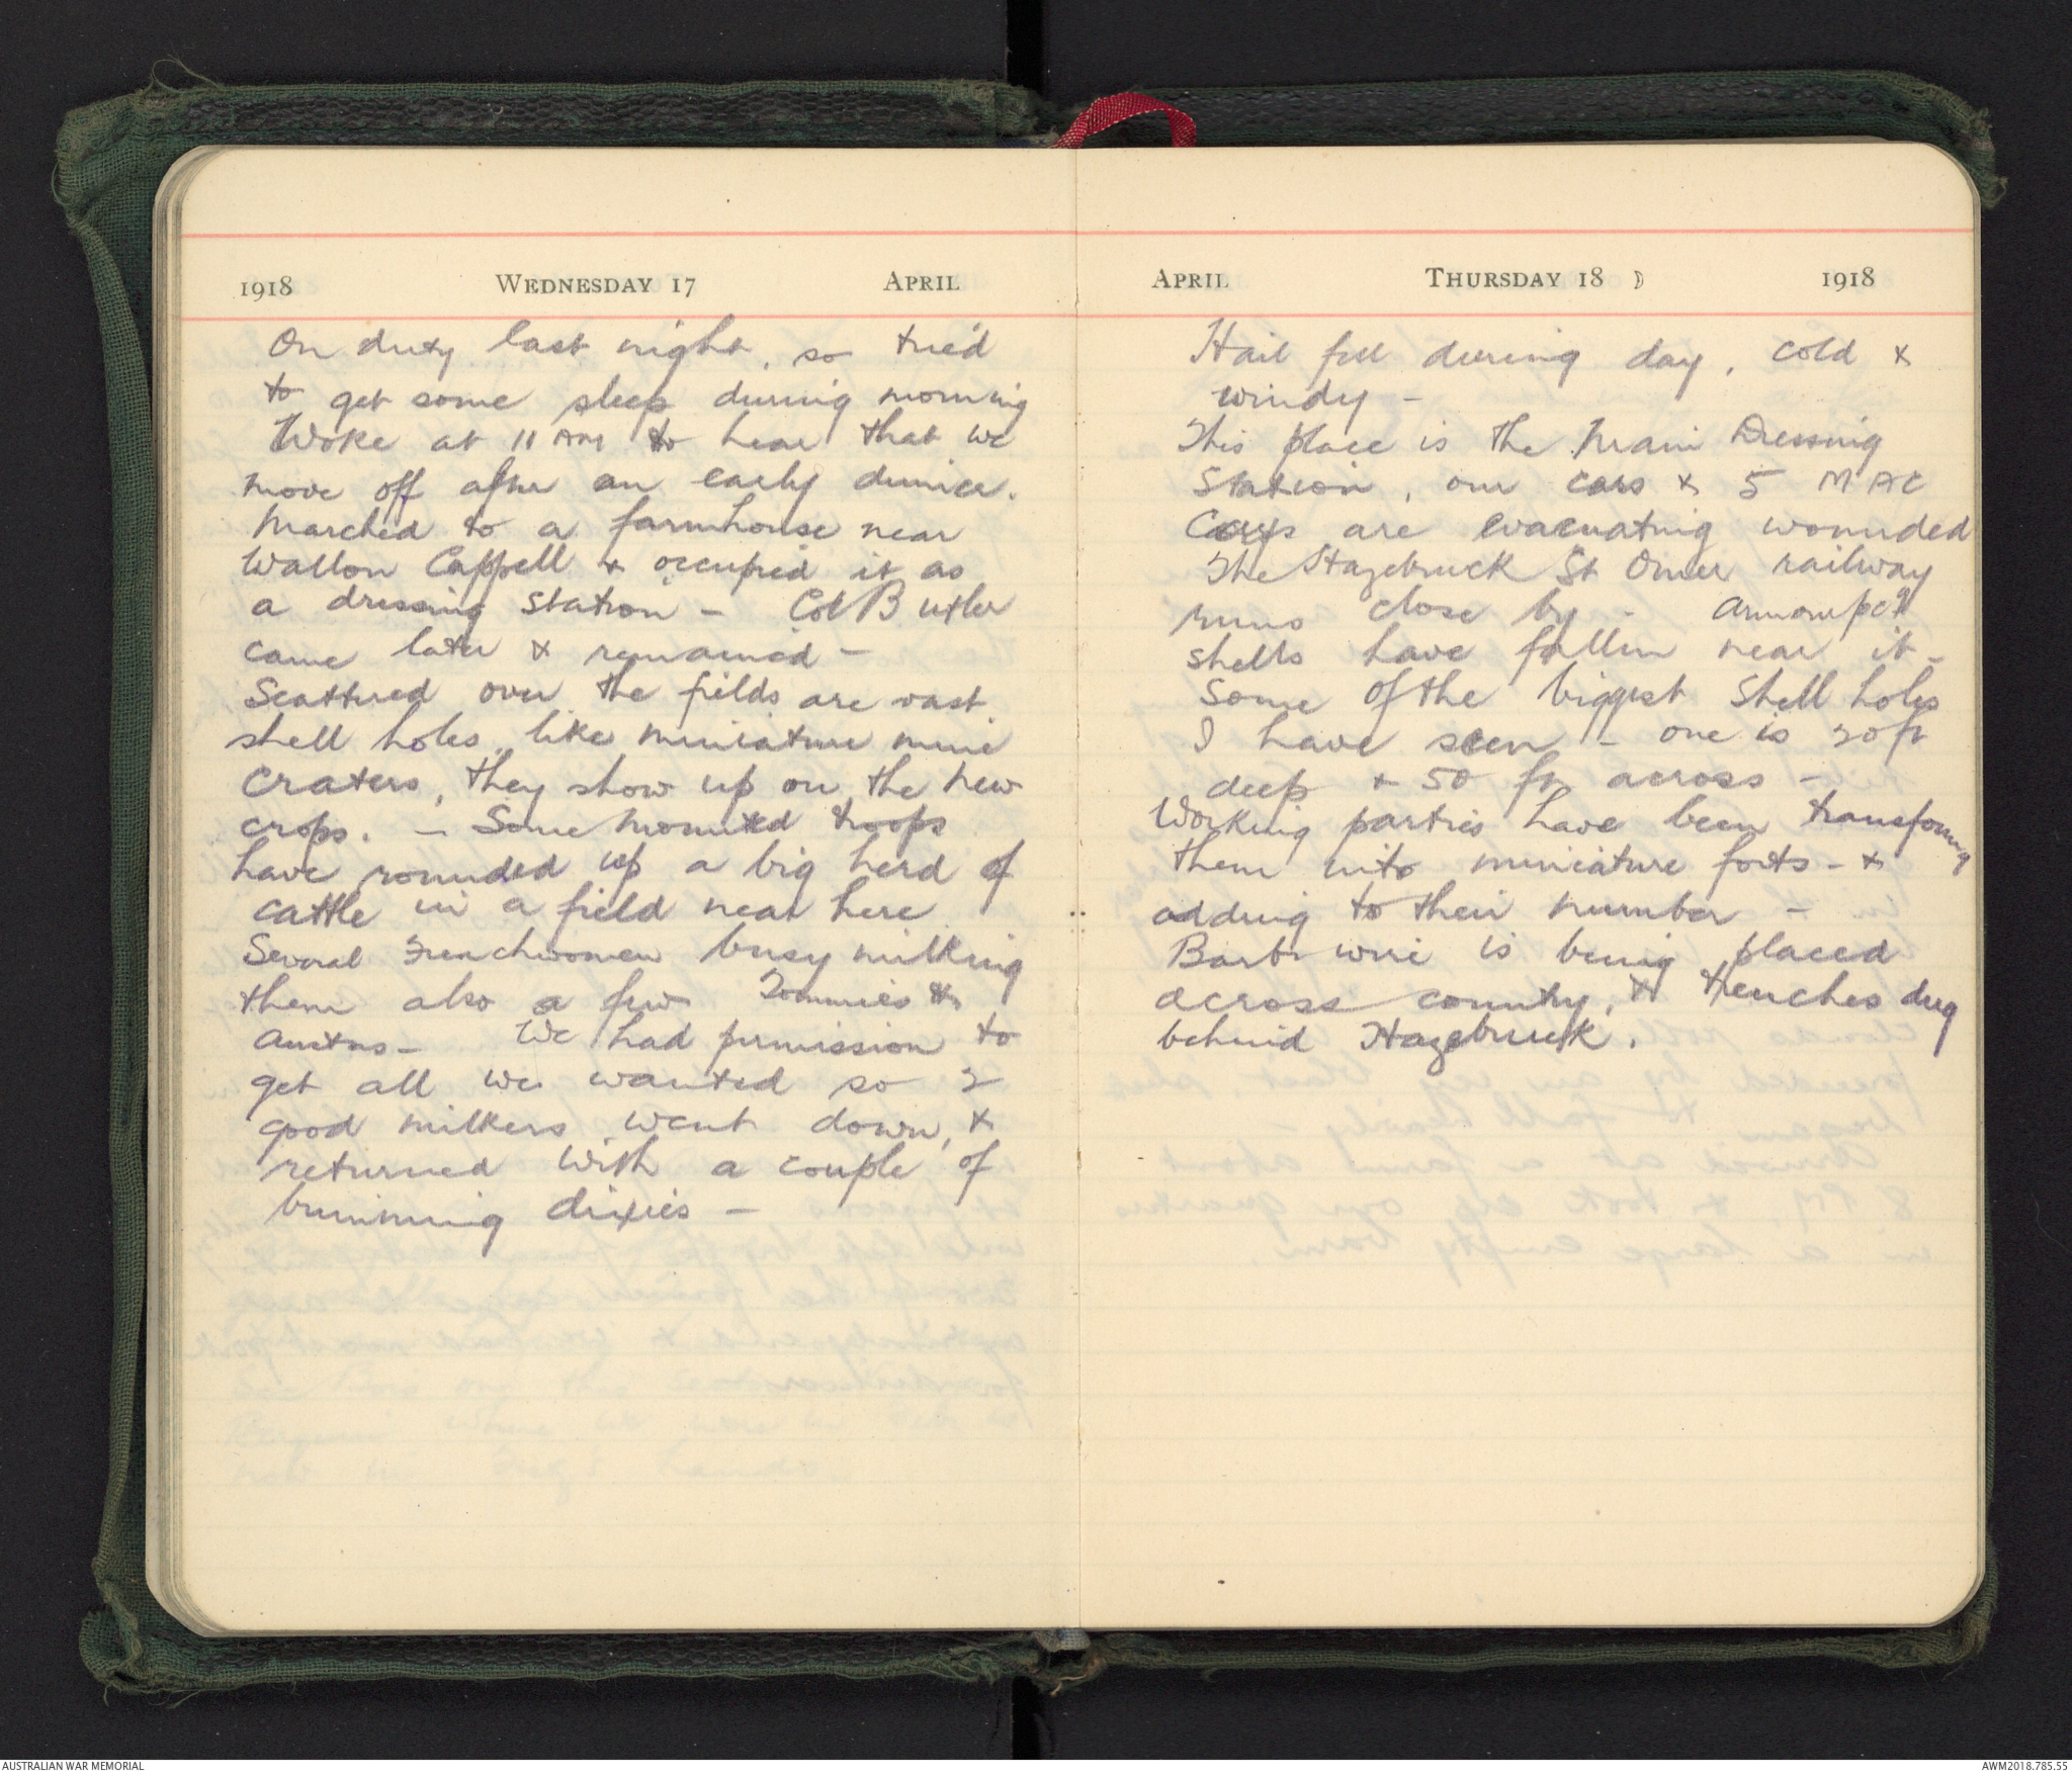 1918 WEDNESDAY 17 APRIL
On duty last night, so tried
to get some sleep during morning
Woke at 11 AM to hear that we
move off after an early dinner.
Marched to a farmhouse near
Wallon Cappell & occupied it as
a dressing station - Col Butler
came later & remained -
Scattered over the fields are vast
shell holes, like miniature mine
craters, they show up on the new
crops. - Some mounted troops
have rounded up a big herd of
cattle in a field near here
Several Frenchwomen busy milking
them also a few Tommies &
Austns - We had permission to
get all we wanted so 2
good milkers went down, &
returned with a couple of
brimming dixies -
APRIL THURSDAY 18 ☽ 1918
Hail fell during day, cold &
windy -
This place is the Main Dressing
Station, our cars & 5 MAC
Cars are evacuating wounded
The Hazebruck St Omer railway
runs close by - Armour pcg
shells have fallen near it -
Some of the biggest shell holes
I have seen - one is 20 ft
deep & 50 ft across -
Working parties have been transforming
them into miniature forts - &
adding to their number -
Barb wire is being placed
across country, & trenches dug
behind Hazebruck.
AUSTRALIAN WAR MEMORIAL
AWM2018.785.55